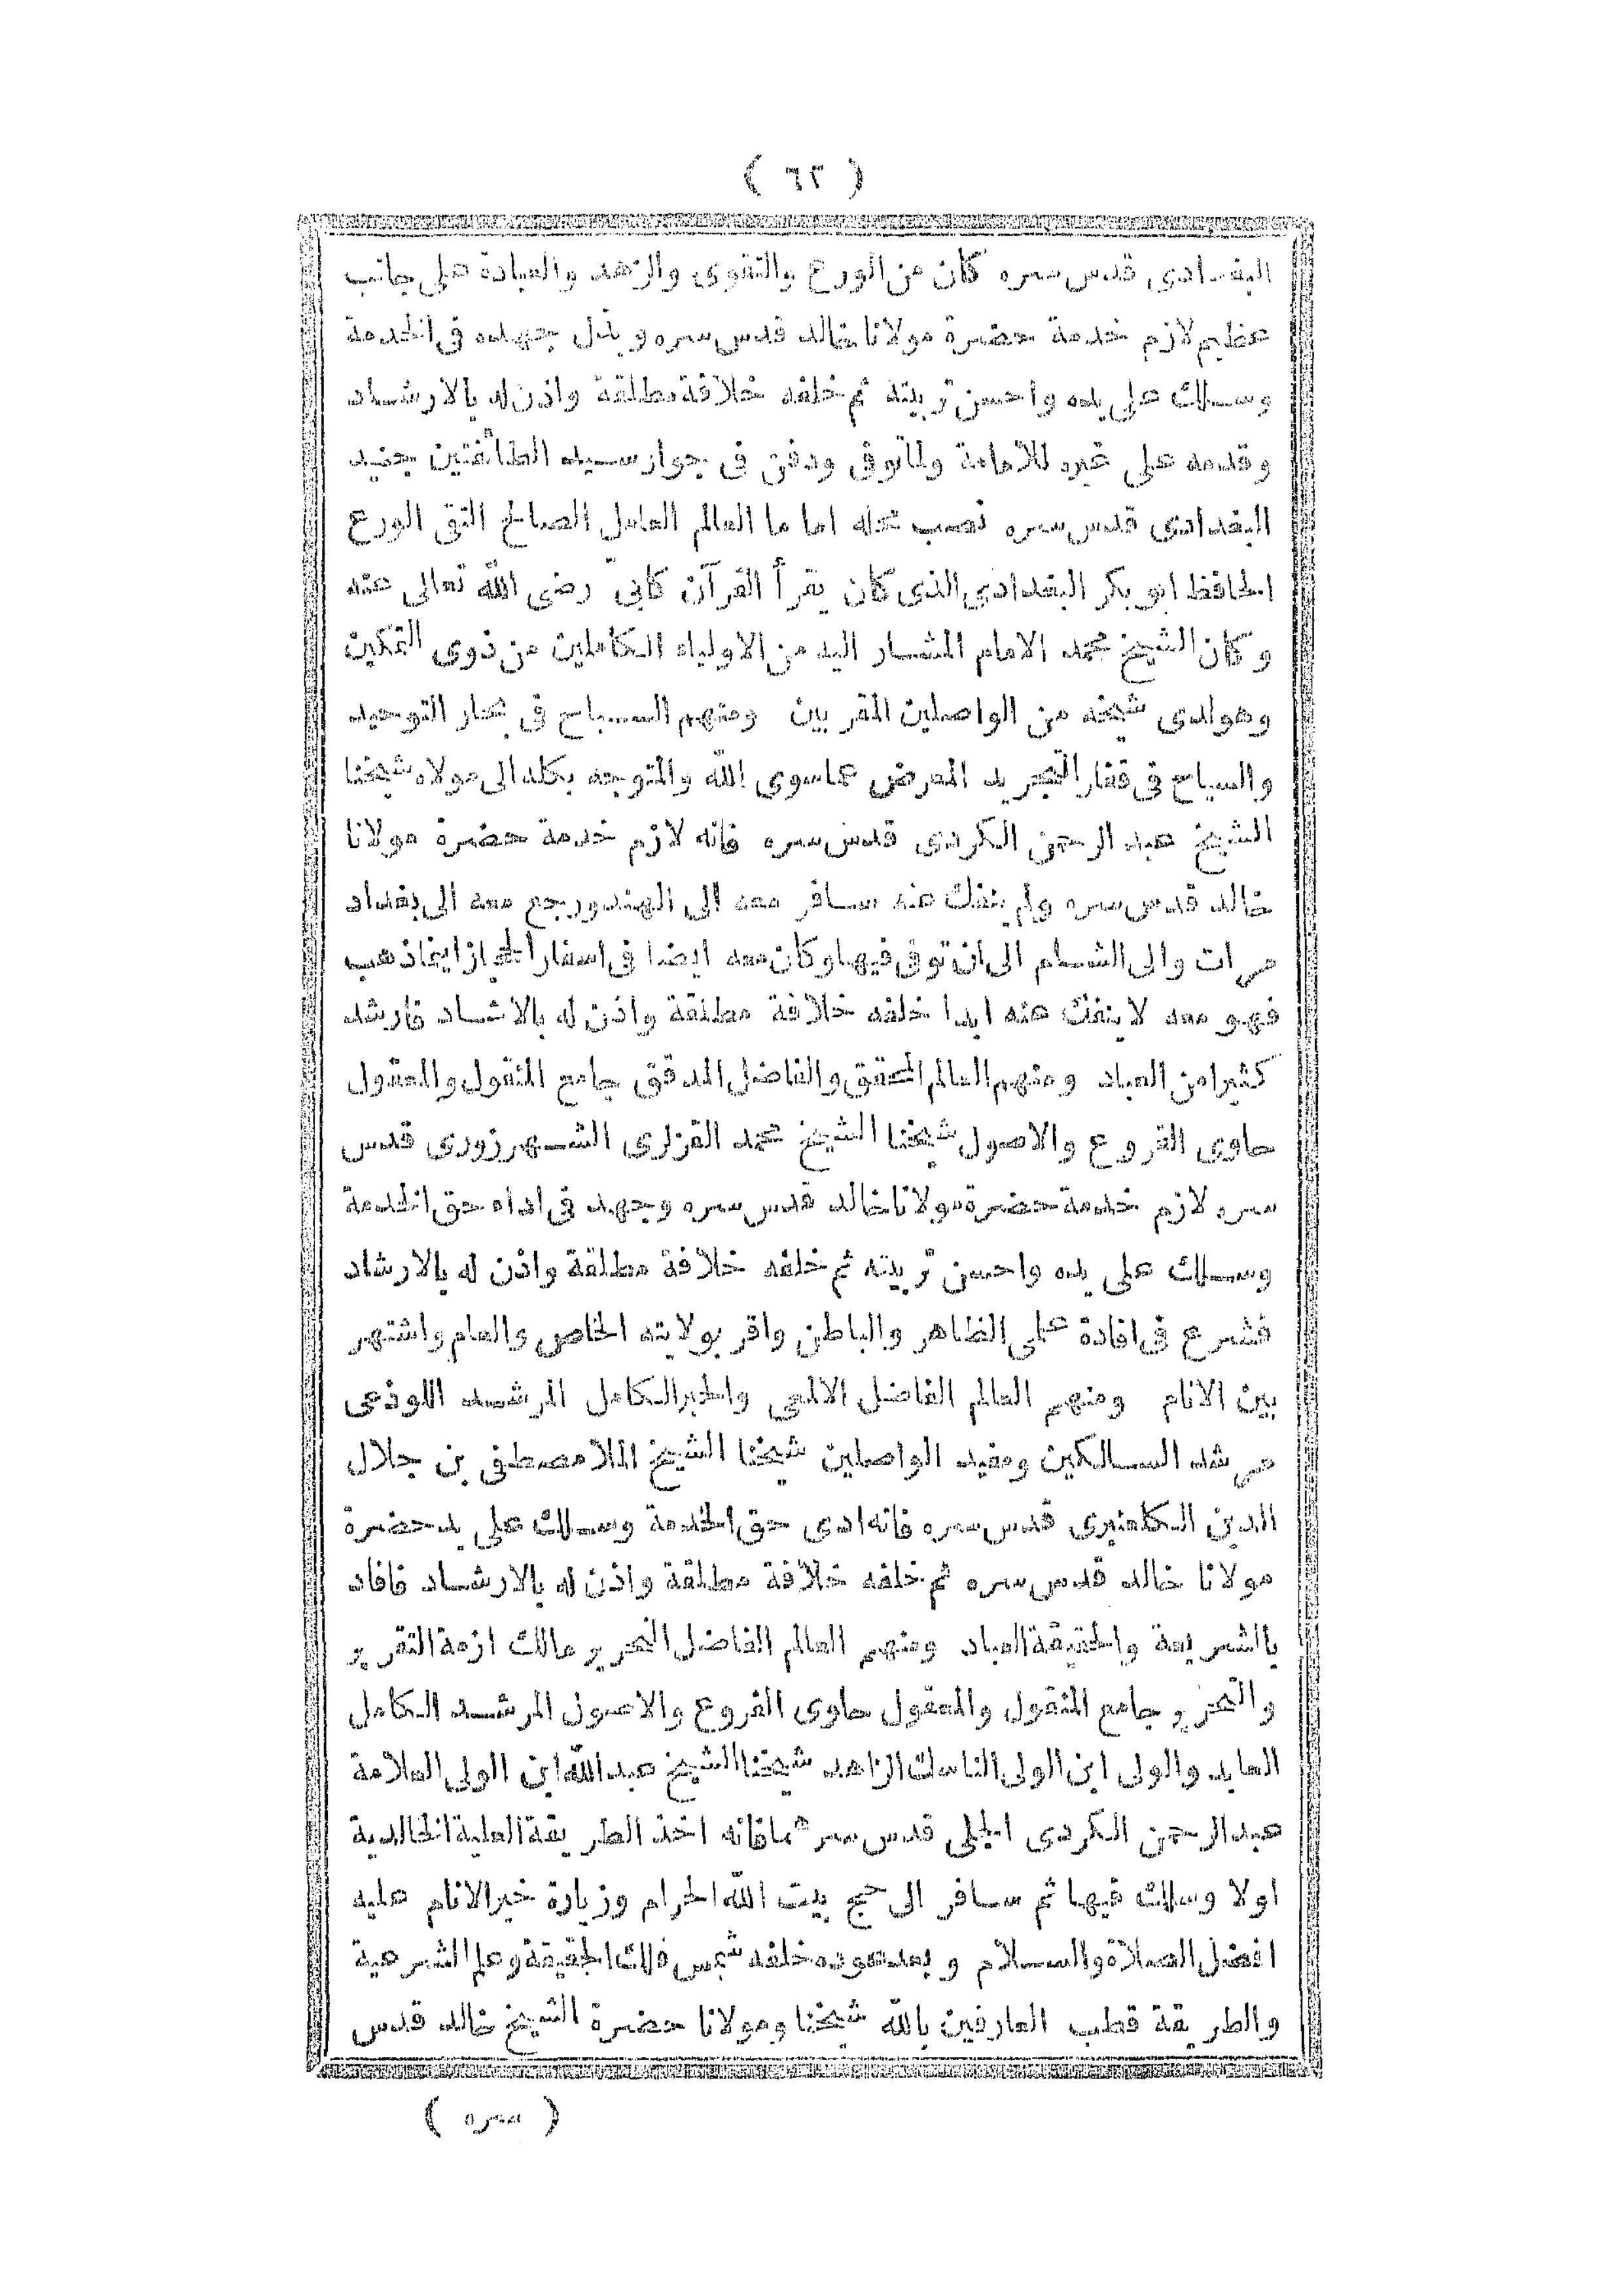 ( ٦٢ )
البغدادى قدس سره كان من الورع والتقوى والزهد والعبادة على جانب
عظيم لازم خدمة حضرة مولانا خالد قدس سره و بذل جهده فى الخدمة
وسلك على يده واحسن تربيته ثم خلفه خلافة مطلقة واذن له بالارشاد
وقدمه على غيره للامامة ولما توفى ودفن فى جوار سيد الطائفتين جنيد
البغدادى قدس سره نصب محله اما ما العالم العامل الصالح التقى الورع
الحافظ ابو بكر البغدادى الذى كان يقرأ القرآن كابى رضى الله تعالى عنه
وكان الشيخ محمد الامام المشار اليه من الاولياء الكاملين من ذوى التمكين
وهو لدى شيخنه من الواصلين المقربين ومنهم السباح فى بحار التوحيد
والسياح فى قفار التجريد المعرض عما سوى الله والمتوجه بكله الى مولاه شيخنا
الشيخ عبد الرحمن الكردى قدس سره فانه لازم خدمة حضرة مولانا
خالد قدس سره ولم ينفك عنه سافر معه الى الهند ورجع معه الى بغداد
مرات والى الشام الى ان توفى فيها وكان معه ايضا فى اسفار الحجاز اينما ذهب
فهو معه لا ينفك عنه ابدا خلفه خلافة مطلقة واذن له بالاشاد فارشد
كثيرا من العباد ومنهم العالم المحقق والفاضل المدقق جامع المنقول والمعقول
حاوى الفروع والاصول شيخنا الشيخ محمد القزلرى الشهرزورى قدس
سره لازم خدمة حضرة مولانا خالد قدس سره وجهد فى اداء حق الخدمة
وسلك على يده واحسن تربيته ثم خلفه خلافة مطلقة واذن له بالارشاد
فشرع فى افادة علمى الظاهر والباطن واقر بولايته الخاص والعام واشتهر
بين الانام ومنهم العالم الفاضل الالمعى والحبر الكامل المرشد اللوذعى
مرشد السالكين ومفيد الواصلين شيخنا الشيخ الملا مصطفى بن جلال
الدين الكلعنبرى قدس سره فانه ادى حق الخدمة وسلك على يد حضرة
مولانا خالد قدس سره ثم خلفه خلافة مطلقة واذن له بالارشاد فافاد
بالشريعة والحقيقة العباد ومنهم العالم الفاضل النحرير مالك ازمة التقرير
والتحرير جامع المنقول والمعقول حاوى الفروع والاصول المرشد الكامل
العابد والولى ابن الولى الناسك الزاهد شيخنا الشيخ عبد الله ابن الولى العلامة
عبد الرحمن الكردى الجلى قدس سرهما فانه اخذ الطريقة العلية الخالدية
اولا وسلك فيها ثم سافر الى حج بيت الله الحرام وزيارة خير الانام عليه
افضل الصلاة والسلام و بعد عوده خلفه شمس فلك الحقيقة وعلم الشرعية
والطريقة قطب العارفين بالله شيخنا ومولانا حضرة الشيخ خالد قدس
( سره )